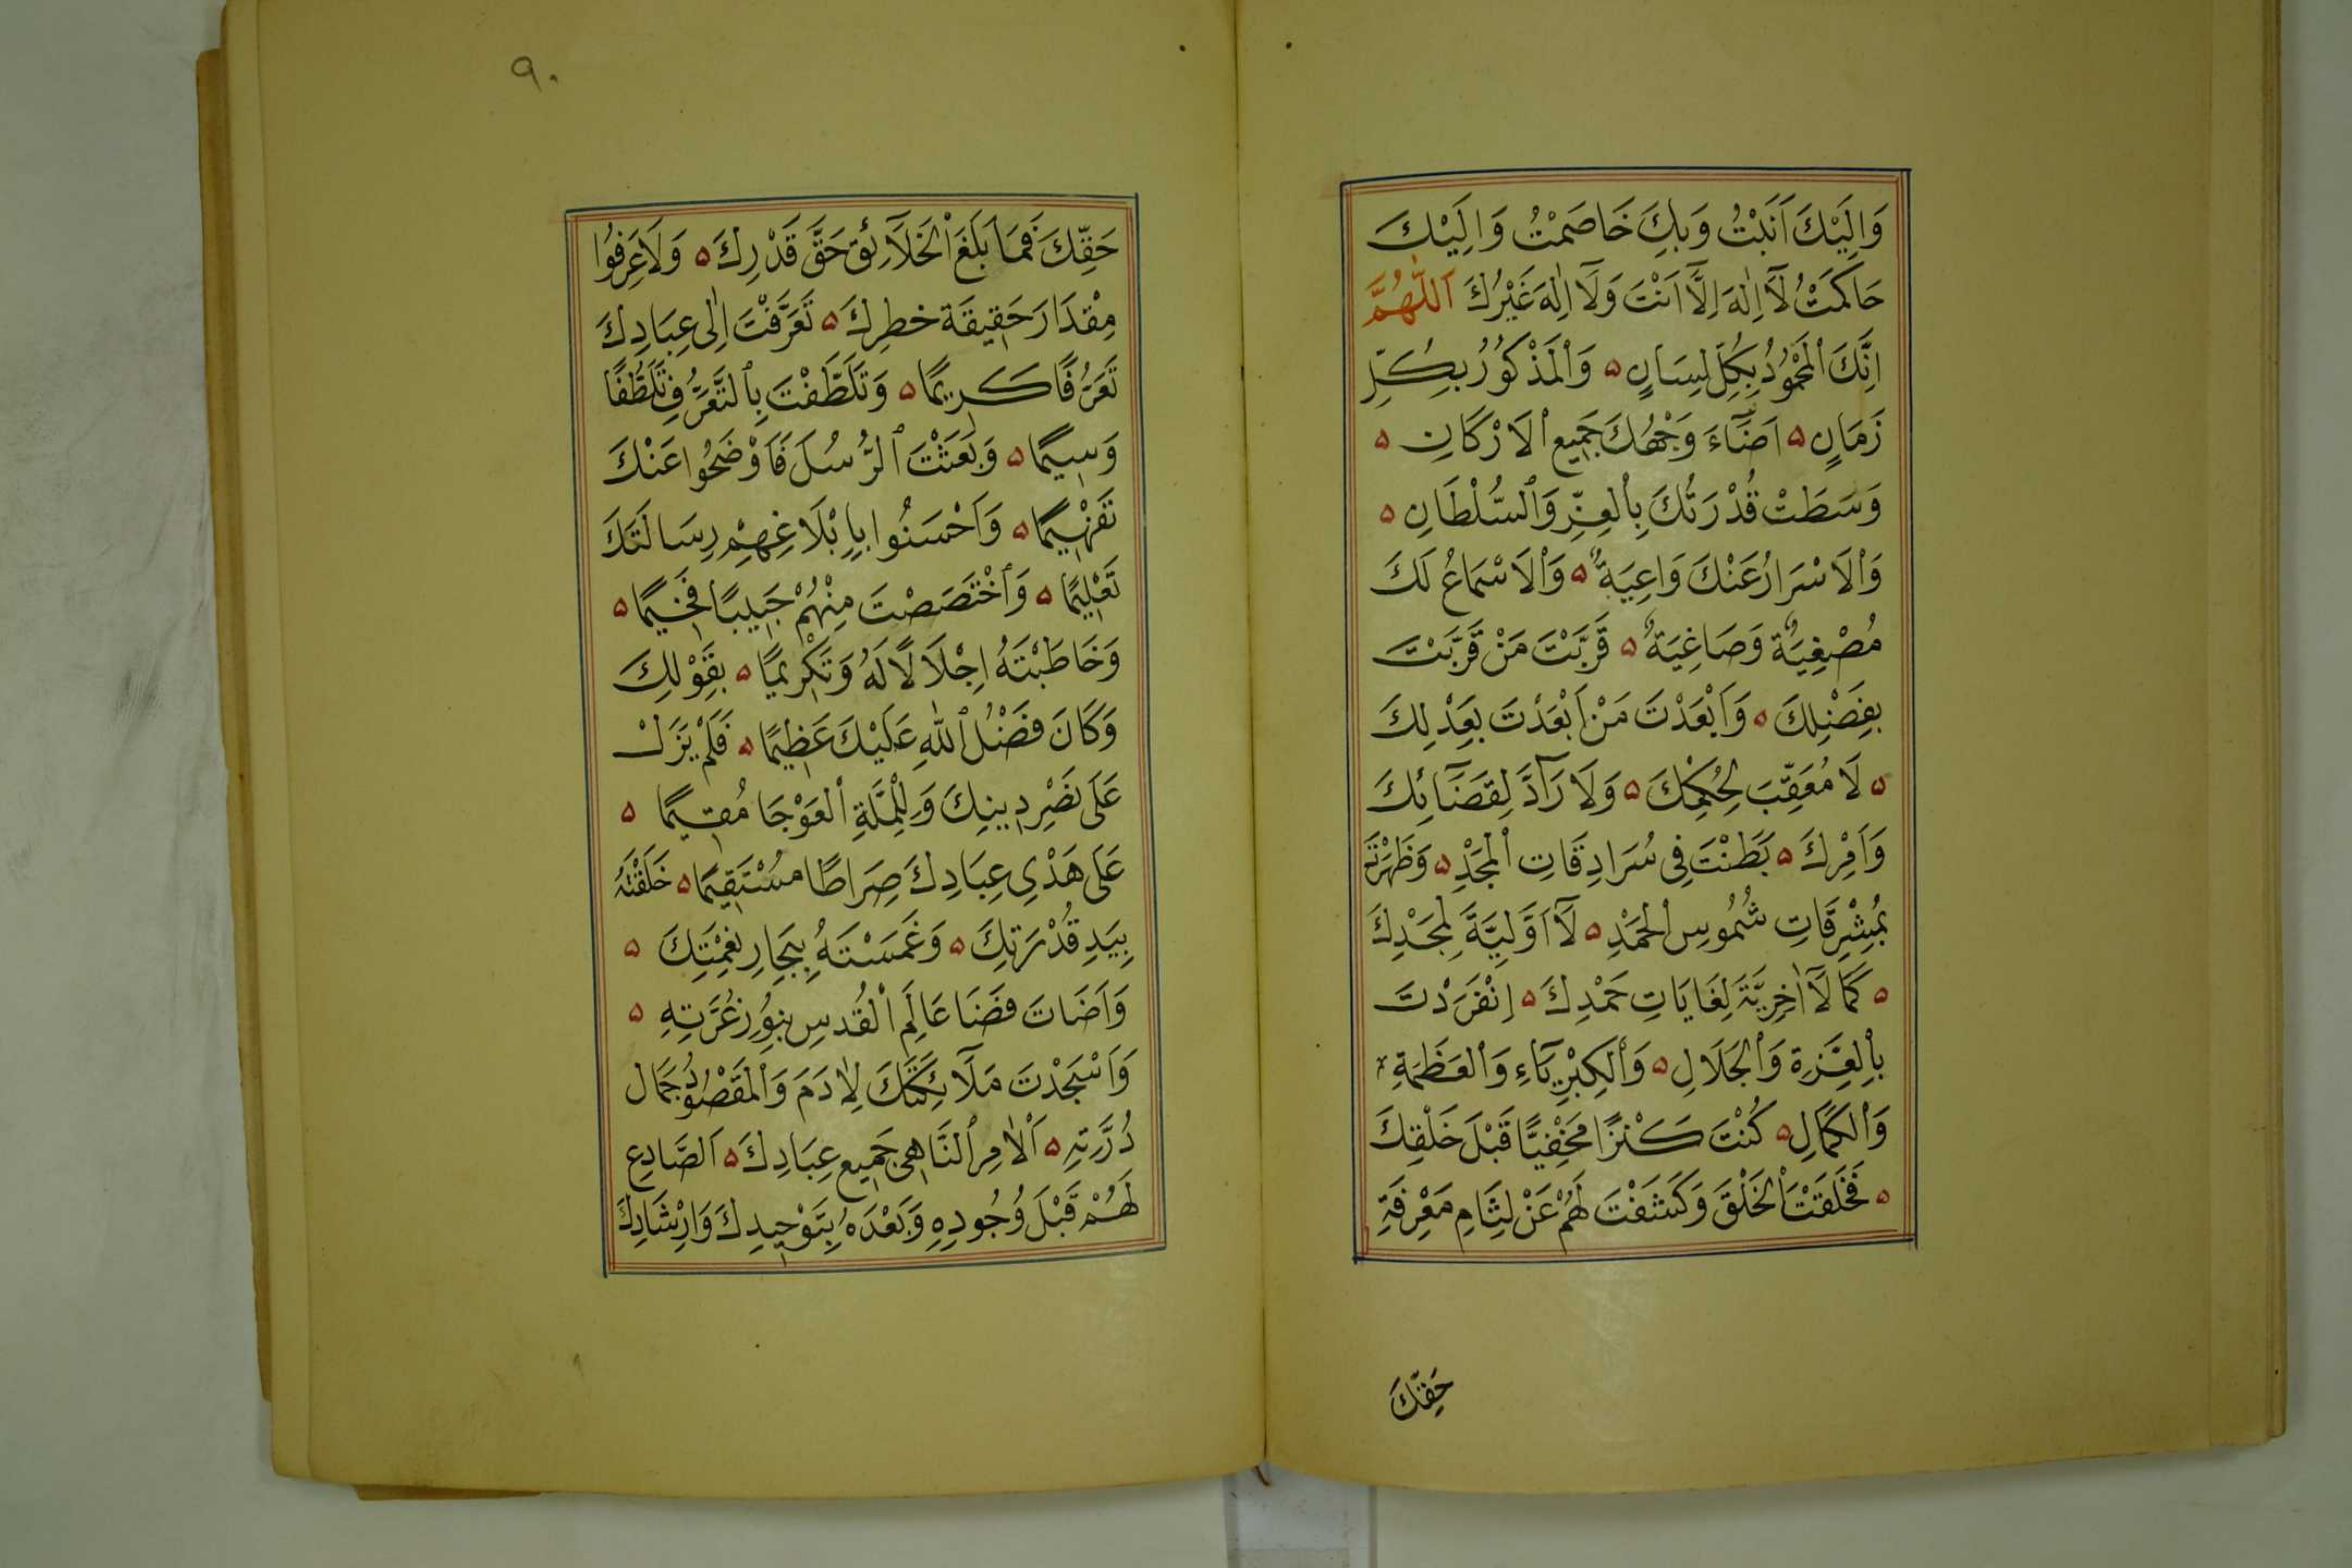 وَاِلَيْكَ اَنَبْتُ وَبِكَ خَاصَمْتُ وَاِلَيْكَ
حَاكَمْتُ لَآ اِلٰهَ اِلَّآ اَنْتَ وَلَآ اِلٰهَ غَيْرُكَ اَللّٰهُمَّ
اِنَّكَ الْمَحْمُودُ بِكُلِّ لِسَانٍ ۵ وَالْمَذْكُورُ بِكُلِّ
زَمَانٍ ۵ اَضَآءَ وَجْهُكَ جَمِيعَ الْاَرْكَانِ ۵
وَسَطَتْ قُدْرَتُكَ بِالْعِزِّ وَالسُّلْطَانِ ۵
وَالْاَسْرَارُ عَنْكَ وَاعِيَةٌ ۵ وَالْاَسْمَاعُ لَكَ
مُصْغِيَةٌ وَصَاغِيَةٌ ۵ قَرَّبْتَ مَنْ قَرَّبْتَ
بِفَضْلِكَ ۵ وَاَبْعَدْتَ مَنْ اَبْعَدْتَ بِعَدْلِكَ
۵ لَا مُعَقِّبَ لِحُكْمِكَ ۵ وَلَا رَآدَّ لِقَضَآئِكَ
وَاَمْرِكَ ۵ بَطَنْتَ فِى سُرَادِقَاتِ الْمَجْدِ ۵ وَظَهَرْتَ
بِمُشْرِقَاتِ شُمُوسِ الْحَمْدِ ۵ لَآ اَوَّلِيَّةَ لِمَجْدِكَ
۵ كَمَا لَآ اٰخِرِيَّةَ لِغَايَاتِ حَمْدِكَ ۵ اِنْفَرَدْتَ
بِالْعِزَّةِ وَالْجَلَالِ ۵ وَالْكِبْرِيَآءِ وَالْعَظَمَةِ
وَالْكَمَالِ ۵ كُنْتَ كَنْزًا مَخْفِيًّا قَبْلَ خَلْقِكَ
۵ فَخَلَقْتَ الْخَلْقَ وَكَشَفْتَ لَهُمْ عَنْ لِثَامِ مَعْرِفَةِ
حَقِّكَ
۹۰
حَقِّكَ فَمَا بَلَغَ الْخَلَآئِقُ حَقَّ قَدْرِكَ ۵ وَلَا عَرَفُوا
مِقْدَارَ حَقِيقَة خطرِكَ ۵ تَعَرَّفْتَ اِلٰى عِبَادِكَ
تَعَرُّفًا كَرِيمًا ۵ وَتَلَطَّفْتَ بِالتَّعَرُّفِ تَلَطُّفًا
وَسِيمًا ۵ وَبَعَثْتَ الرُّسُلَ فَاَوْضَحُوا عَنْكَ
تَفْهِيمًا ۵ وَاَحْسَنُوا بِاِبْلَاغِهِمْ رِسَالَتَكَ
تَعْلِيمًا ۵ وَاخْتَصَصْتَ مِنْهُمْ حَبِيبًا فَخِيمًا ۵
وَخَاطَبْتَهُ اِجْلَالًا لَهُ وَتَكْرِيمًا ۵ بِقَوْلِكَ
وَكَانَ فَضْلُ اللّٰهِ عَلَيْكَ عَظِيمًا ۵ فَلَمْ يَزَلْ
عَلَى نَصْرِ دِينِكَ وَلِلْمِلَّةِ الْعَوْجَا مُقِيمًا ۵
عَلَى هَدْىِ عِبَادِكَ صِرَاطًا مُسْتَقِيمًا ۵ خَلَقْتَهُ
بِيَدِ قُدْرَتِكَ ۵ وَغَمَسْتَهُ بِبِحَارِ نِعْمَتِكَ ۵
وَاَضَاتَ فَضَا عَالَمِ الْقُدسِ بِنُورِ غُرَّتِهِ ۵
وَاَسْجَدْتَ مَلَآئِكَتَكَ لِاٰدَمَ وَالْمَقْصُودُ جَمَال
دُرَّتِهِ ۵ اَلْاٰمِرِ النَّاهِى جَمِيعِ عِبَادِكَ ۵ اَلصَّادِعِ
لَهُمْ قَبْلَ وُجُودِهِ وَبَعْدَهُ بِتَوْحِيدِكَ وَاِرْشَادِكَ